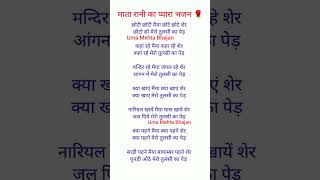 माता रानी का प्यारा भजन 🌹
छोटी छोटी मैया छोटे छोटे शेर
छोटो सो मेरो तुलसी का पेड़
Uma Mehta Bhajan
कहां रहे मैया कहा रहे शेर
कहां रहे मेरो तुलसी का पेड़
मन्दिर रहे मैया जंगल रहे शेर
आंगन में मेरो तुलसी का पेड़
क्या खाएं मैया क्या खाएं शेर
क्या खाए मेरो तुलसी का पेड़
नारियल खायें मैया घास खायें शेर
जल पिये मेरो तुलसी का पेड़
Uma Mehta Bhajan
क्या पहने मैया क्या पहने शेर
क्या पहने मेरो तुलसी का पेड़
साड़ी पहने मैया बाघाम्बर पहने शेर
चुनड़ी ओढ़े मेरो तुलसी का पेड़